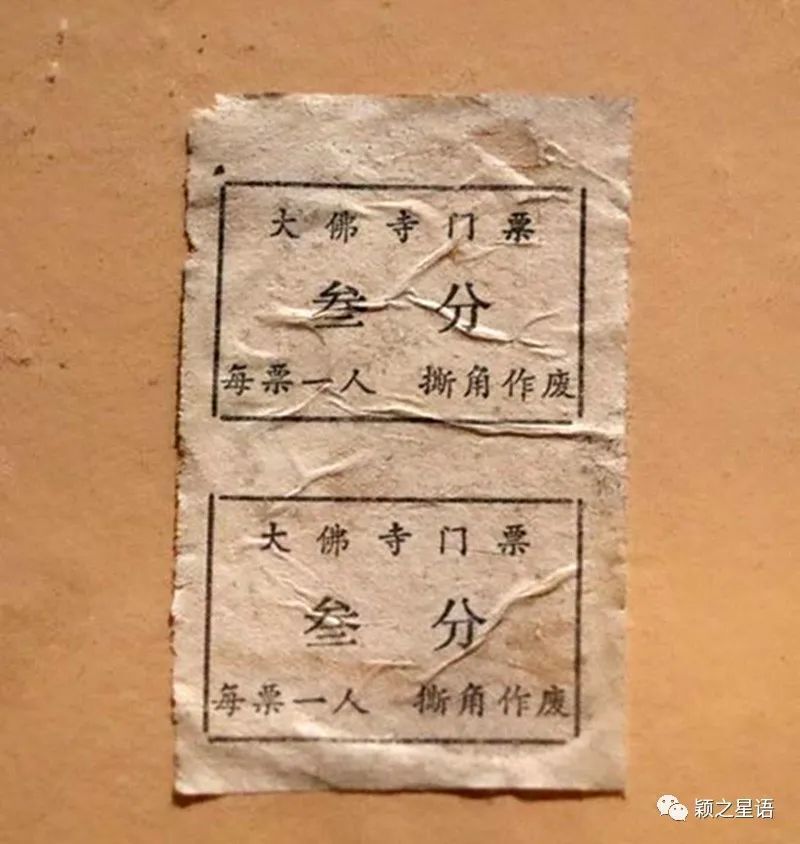 大佛寺门票
叁分
每票一人 撕角作废
大佛寺门票
叁分
每票一人 撕角作废
颖之星语